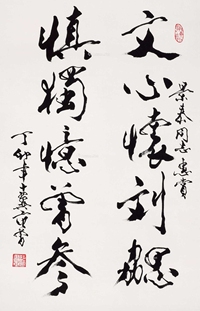 文心怀刘勰
景泰同志惠赏
慎独忆曾参
丁卯年十翼范曾